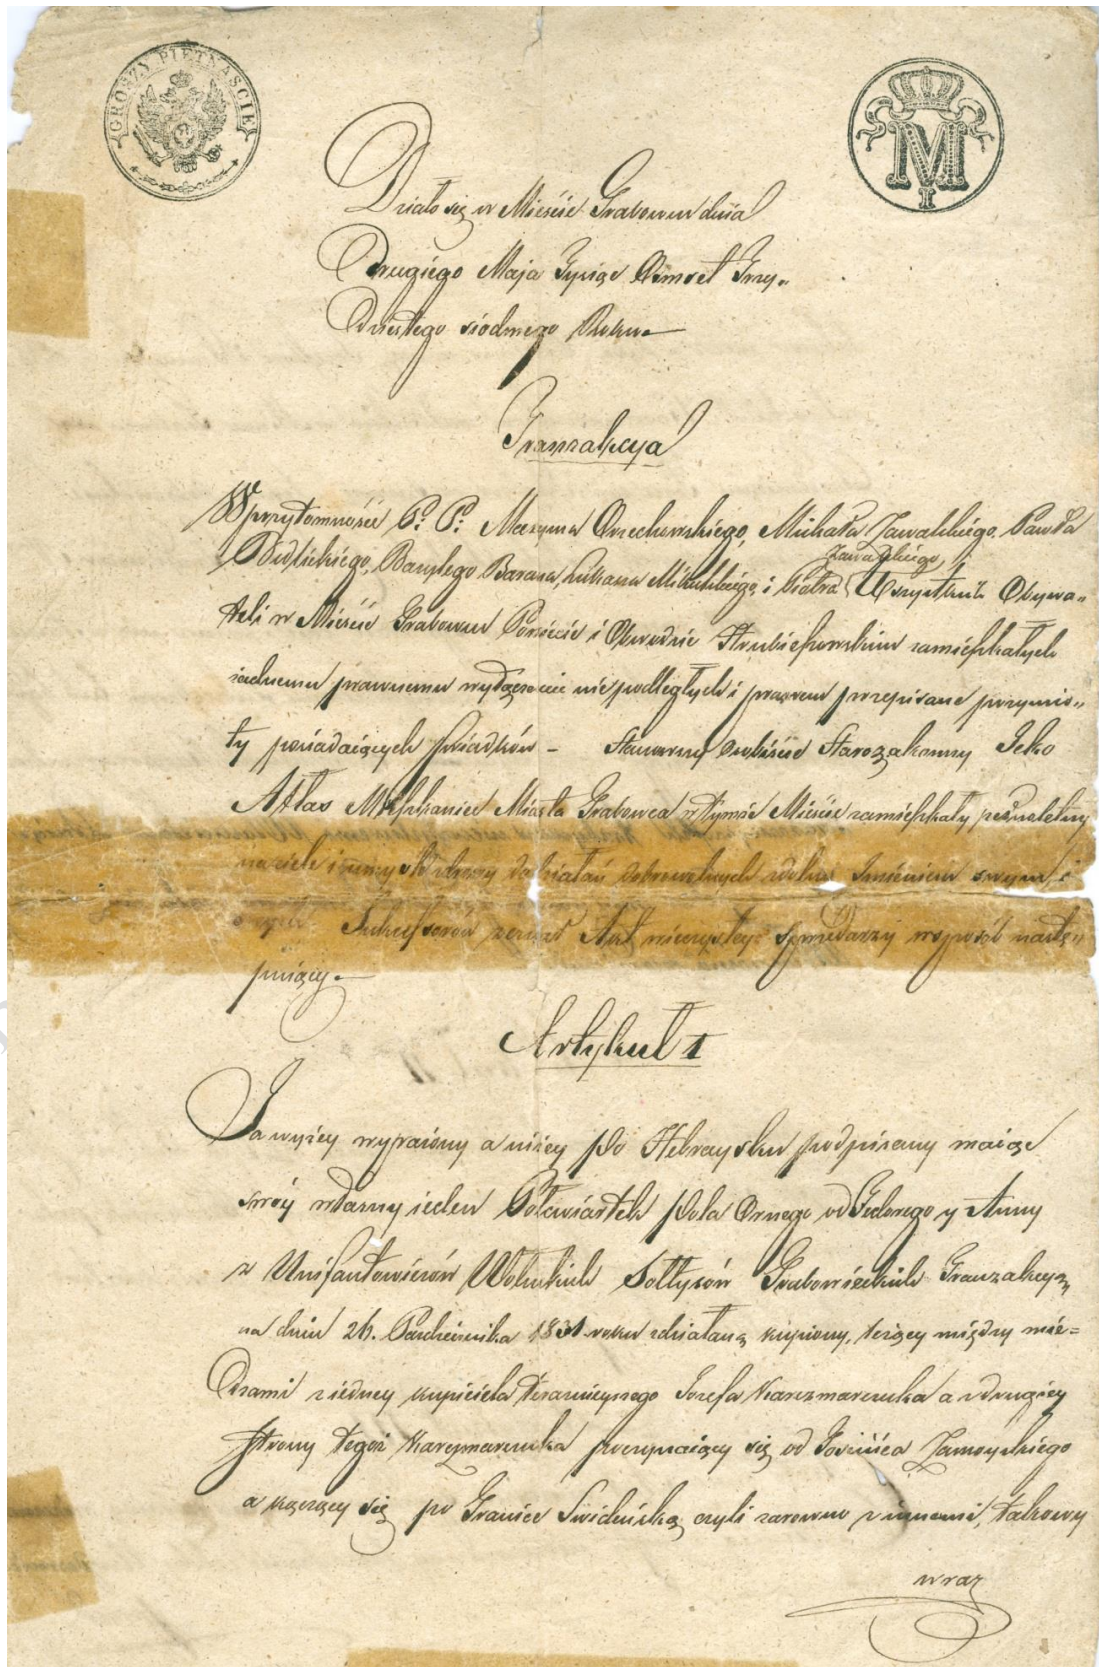 GROSZY PIETNAŚCIE
M
I
Działo się w Mieście Grabowcu dnia
Drugiego Maja Tysiąc Ośmset Trzy„
Dziestego siodmego Roku
Tranzakcya
W przytomności P: P: Orzechowskiego, Michała Zawalskiego, Pawła
Bazylego Barana, Łukasza i Piotra Zawadzkiego, Wszystkich Obywa„
teli w Mieście Grabowcu Powiecie i Obwodzie Hrubieszowskim zamieszkałych
żadnemu prawnemu nie podległych i prawem przepisane przymio„
ty posiadaiących świadków – Stawaiący osobiście Starozakonny Icko
Atlas Mieszkaniec Miasta Grabowca w tymże Mieście zamieszkały pełnoletny
na ciele i umyśle zdrowy do działań dobrowolnych zdolny Imieniem swym i
swych Sukcessorów zeznał Akt wieczystey sprzedaży w sposób nastę„
puiący
Artykuł 1
Ja wyżey wyrażony a niżey po Hebraysku podpisany maiąc
swóy własny ieden Półćwiartek Pola Ornego od Fedorego y Anny
z Wołuskich Sołtysów Grabowieckich Tranzakcyą
na dniu 26. Października 1831 roku zdziałaną kupiony, leżący między mie=
dzami z iedney kupiciela teraznieyszego Jozefa Karczmarczuka a z drugiey
strony tegoż Karczmarczuka poczynaiący się od Gościńca Zamoyskiego
a kączący się po Granice Świdnicką czyli zarowno z innemi, takowy
wraz